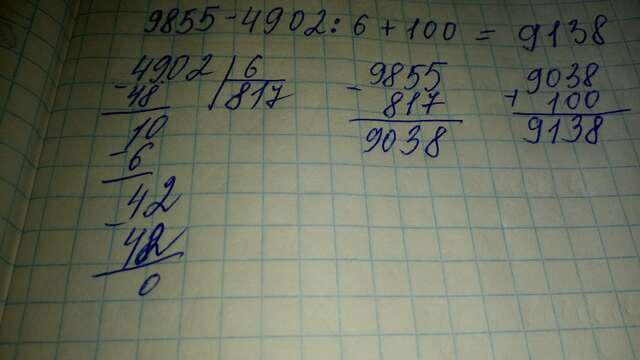 9855 - 4902 : 6 + 100 = 9138
4902 | 6
- 48 | 817
10
- 6
42
- 42
0
- 9855
817
9038
+ 9038
100
9138